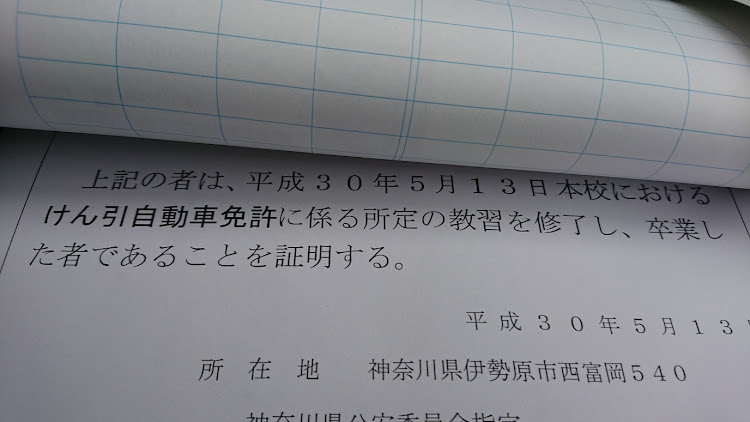 上記の者は、平成３０年５月１３日本校における
けん引自動車免許に係る所定の教習を修了し、卒業し
た者であることを証明する。
平成３０年５月１３
所在地 神奈川県伊勢原市西富岡５４０
神奈川県公安委員会指定